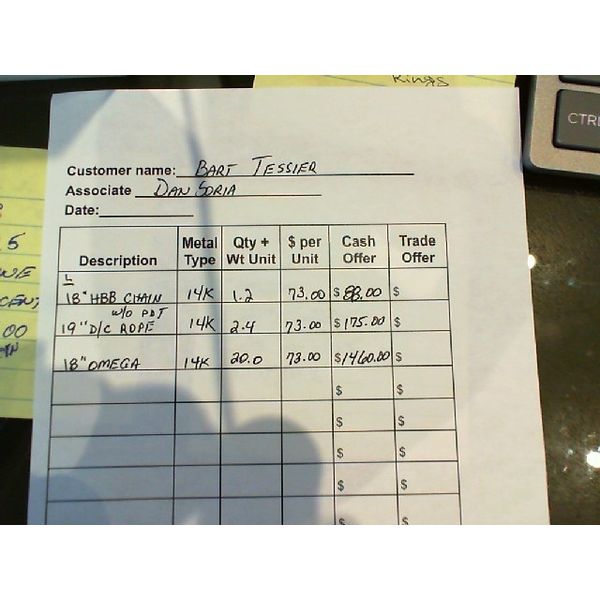 Kings
CTRL
5
00
Customer name: BART TESSIER
Associate DAN SORIA
Date:
Description Metal Type Qty + Wt Unit $ per Unit Cash Offer Trade Offer
18" HBB CHAIN 14K 1.2 73.00 $ 88.00 $
w/o PDT
19" D/C ROPE 14K 2.4 73.00 $ 175.00 $
18" OMEGA 14K 20.0 73.00 $ 1460.00 $
$ $
$ $
$ $
$ $
$ $